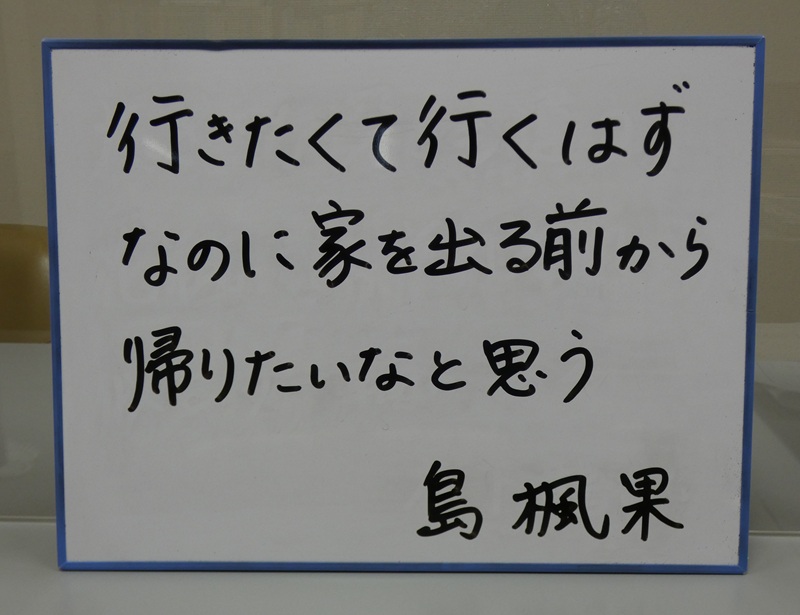 行きたくて行くはず
なのに家を出る前から
帰りたいなと思う
島楓果